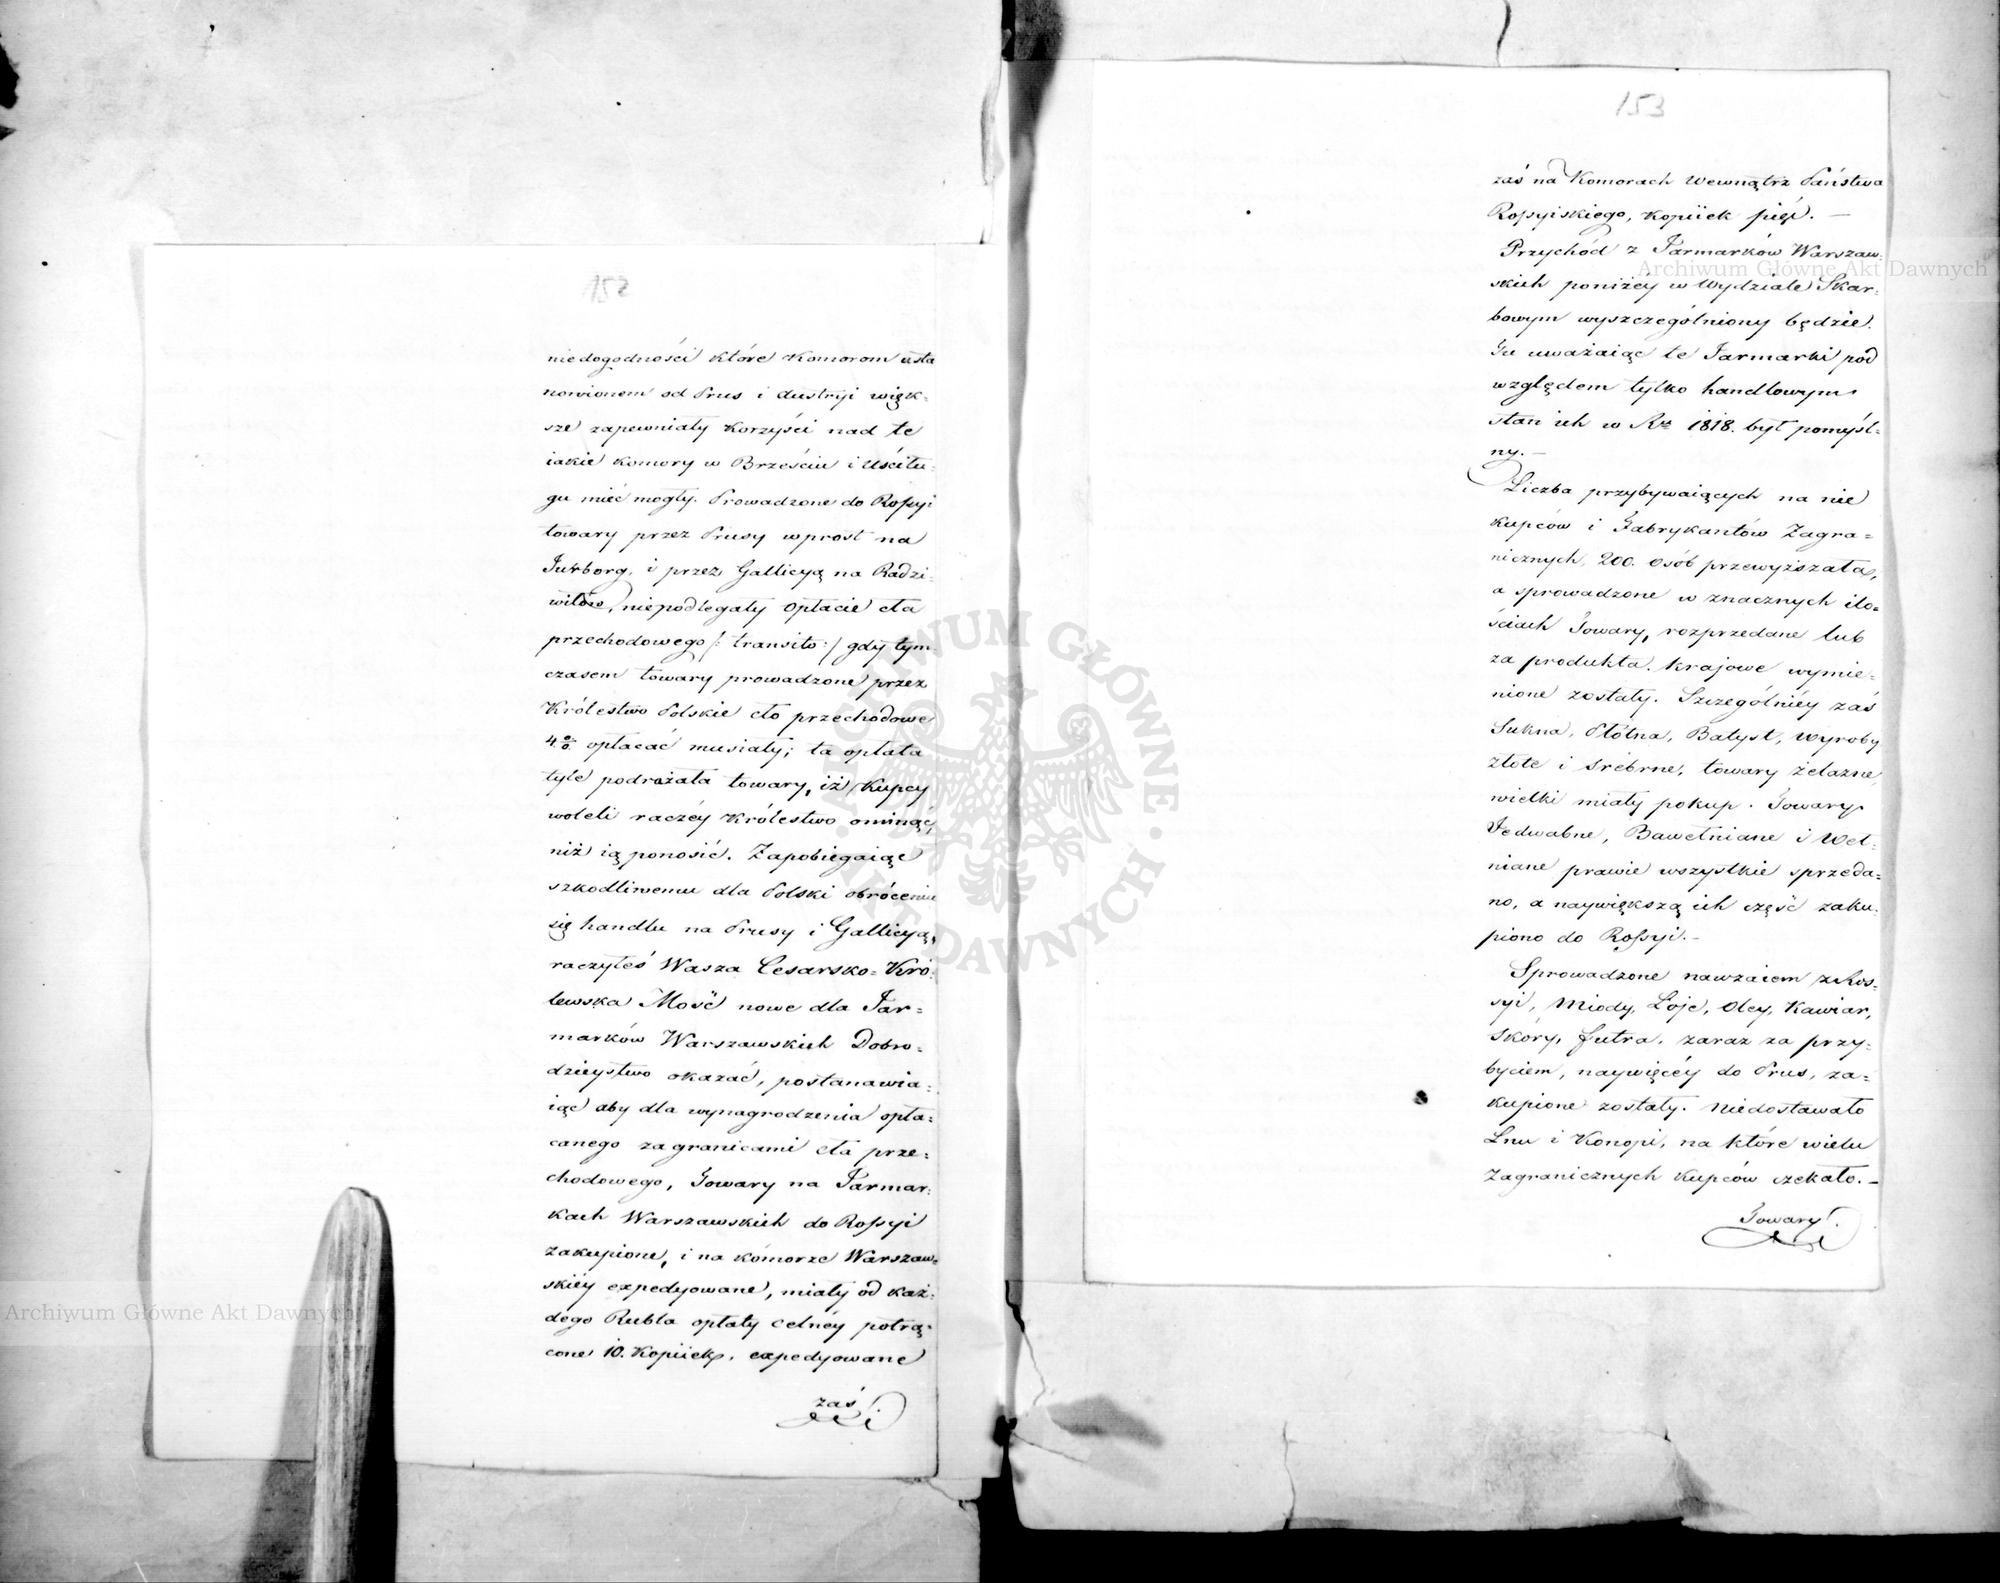 152
niedogodności które Komorom usta
nowionem od Prus i Austryi więk-
sze zapewniały korzyści nad te
iakie komory w Brześciu i Uściłu-
gu mieć mogły. Prowadzone do Rossyi
towary przez Prusy wprost na
Jurborg, i przez Gallicyą na Radzi-
wiłów, niepodlegały opłacie cła
przechodowego /: transito :/ gdy tym
czasem towary prowadzone przez
Królestwo Polskie cło przechodowe
4 % opłacać musiały; ta opłata
tyle podrażała towary, iż Kupcy
woleli raczéy Królestwo ominąć,
niż ią ponosić. Zapobiegaiąc
szkodliwemu dla Polski obróceniu
się handlu na Prusy i Gallicyą,
raczyłeś Wasza Cesarsko-Kró-
lewska Mość nowe dla Jar-
marków Warszawskich Dobro-
dzieystwo okazać, postanawia-
iąc aby dla wynagrodzenia opła-
canego zagranicami cła prze-
chodowego, Towary na Jarmar-
kach Warszawskich do Rossyi
zakupione, i na komorze Warszaw-
skiéy expedyowane, miały od każ-
dego Rubla opłaty celnéy potrą-
cone 10. Kopiiek, expedyowane
zaś
153
zaś na Komorach Wewnątrz Państwa
Rossyiskiego, kopiiek pięć. —
Przychód z Jarmarków Warszaw-
skich poniżéy w Wydziale Skar-
bowym wyszczególniony będzie.
Tu uważaiąc te Jarmarki pod
względem tylko handlowym
stan ich w Ru 1818. był pomyśl-
ny. —
Liczba przybywaiących na nie
kupców i Fabrykantów Zagra-
nicznych, 200. osób przewyższała,
a sprowadzone w znacznych ilo-
ściach Towary, rozprzedane lub
za produkta krajowe wymie-
nione zostały. Szczególniéy zaś
Sukna, Płótna, Batyst, Wyroby
złote i srebrne, towary żelazne
wielki miały pokup. Towary
Jedwabne, Bawełniane i Weł-
niane prawie wszystkie sprzeda-
no, a naywiększą ich część zaku-
piono do Rossyi. —
Sprowadzone nawzaiem z Ros-
syi, Miody, Łoje, Oley, Kawiar,
Skóry, futra, zaraz za przy-
byciem, naywięcéy do Prus, za-
kupione zostały. Niedostawało
Lnu i Konopi, na które wielu
Zagranicznych Kupców czekało. —
Towary
Archiwum Główne Akt Dawnych
Archiwum Główne Akt Dawnych
ARCHIWUM GŁÓWNE AKT DAWNYCH